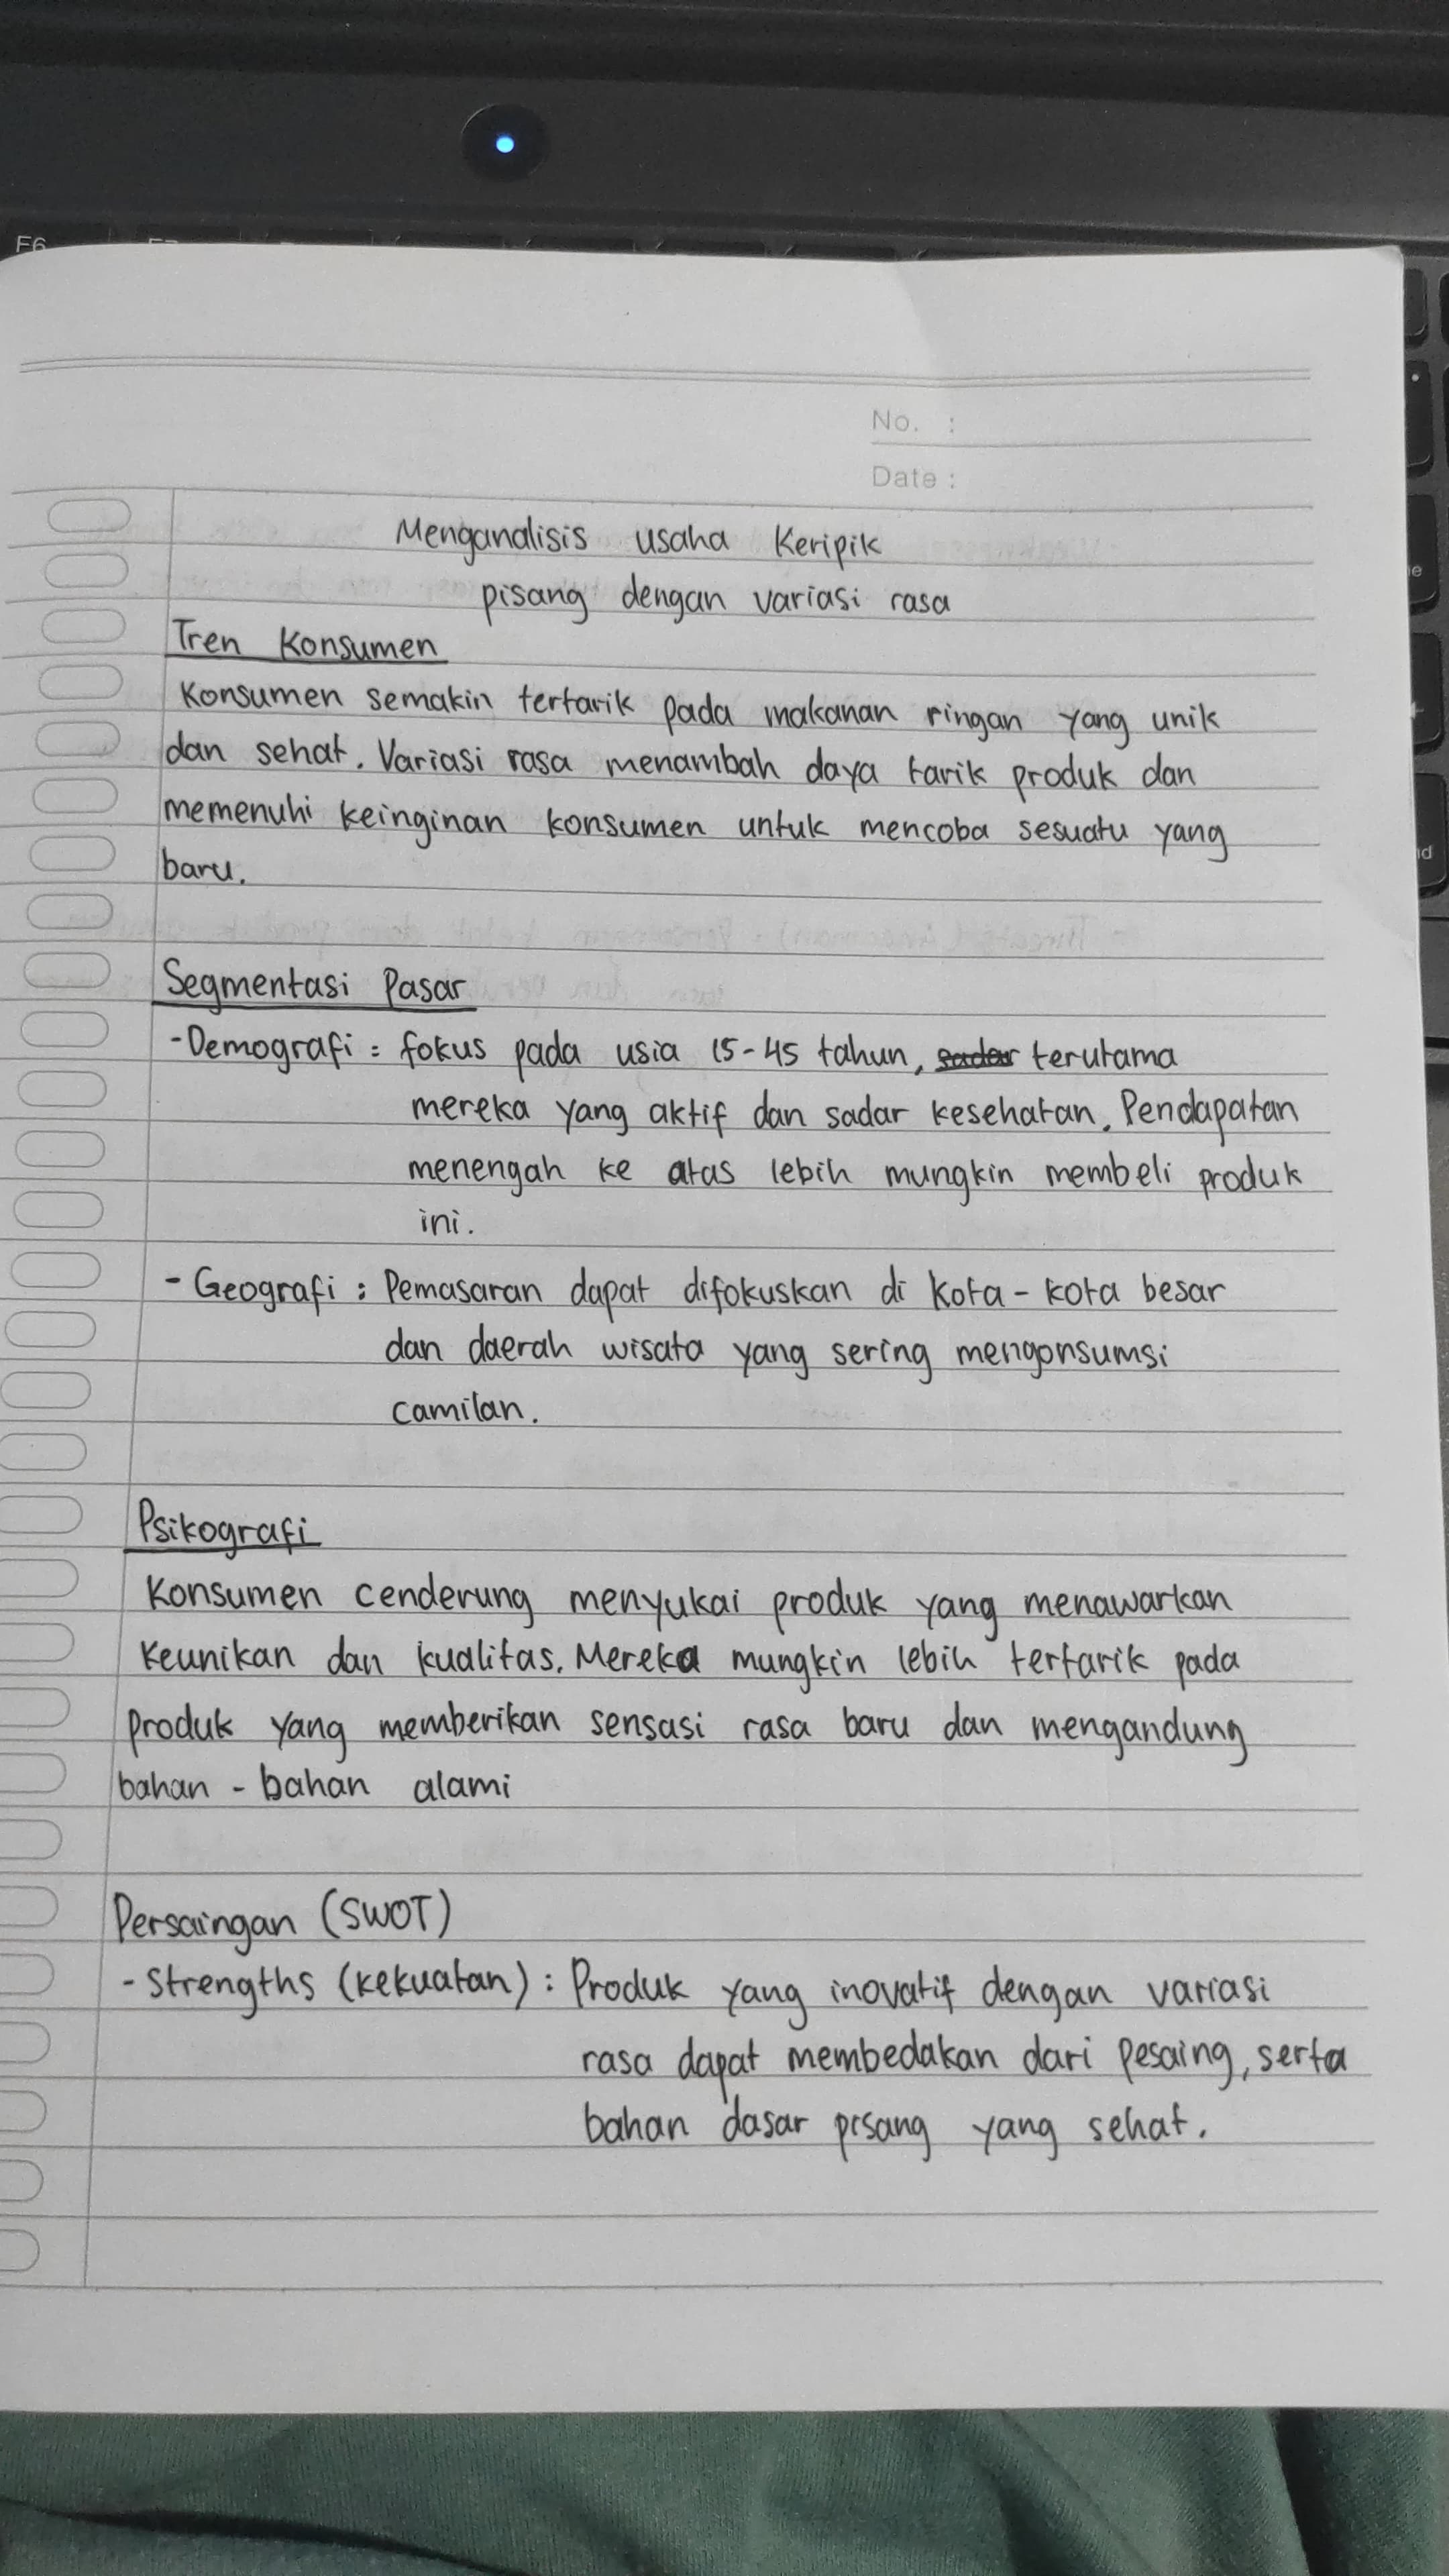 F6
No. :
Date :
Menganalisis usaha Keripik
pisang dengan variasi rasa
Tren Konsumen
Konsumen semakin tertarik pada makanan ringan yang unik
dan sehat. Variasi rasa menambah daya tarik produk dan
memenuhi keinginan konsumen untuk mencoba sesuatu yang
baru.
Segmentasi Pasar
-Demografi : fokus pada usia 15-45 tahun, sadar terutama
mereka yang aktif dan sadar kesehatan. Pendapatan
menengah ke atas lebih mungkin membeli produk
ini.
- Geografi : Pemasaran dapat difokuskan di kota - kota besar
dan daerah wisata yang sering mengonsumsi
camilan.
Psikografi
Konsumen cenderung menyukai produk yang menawarkan
keunikan dan kualitas. Mereka mungkin lebih tertarik pada
produk yang memberikan sensasi rasa baru dan mengandung
bahan - bahan alami
Persaingan (SWOT)
- Strengths (kekuatan) : Produk yang inovatif dengan variasi
rasa dapat membedakan dari pesaing, serta
bahan dasar pisang yang sehat.